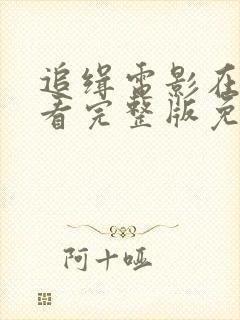 追缉电影在
看完整版免
阿十哑